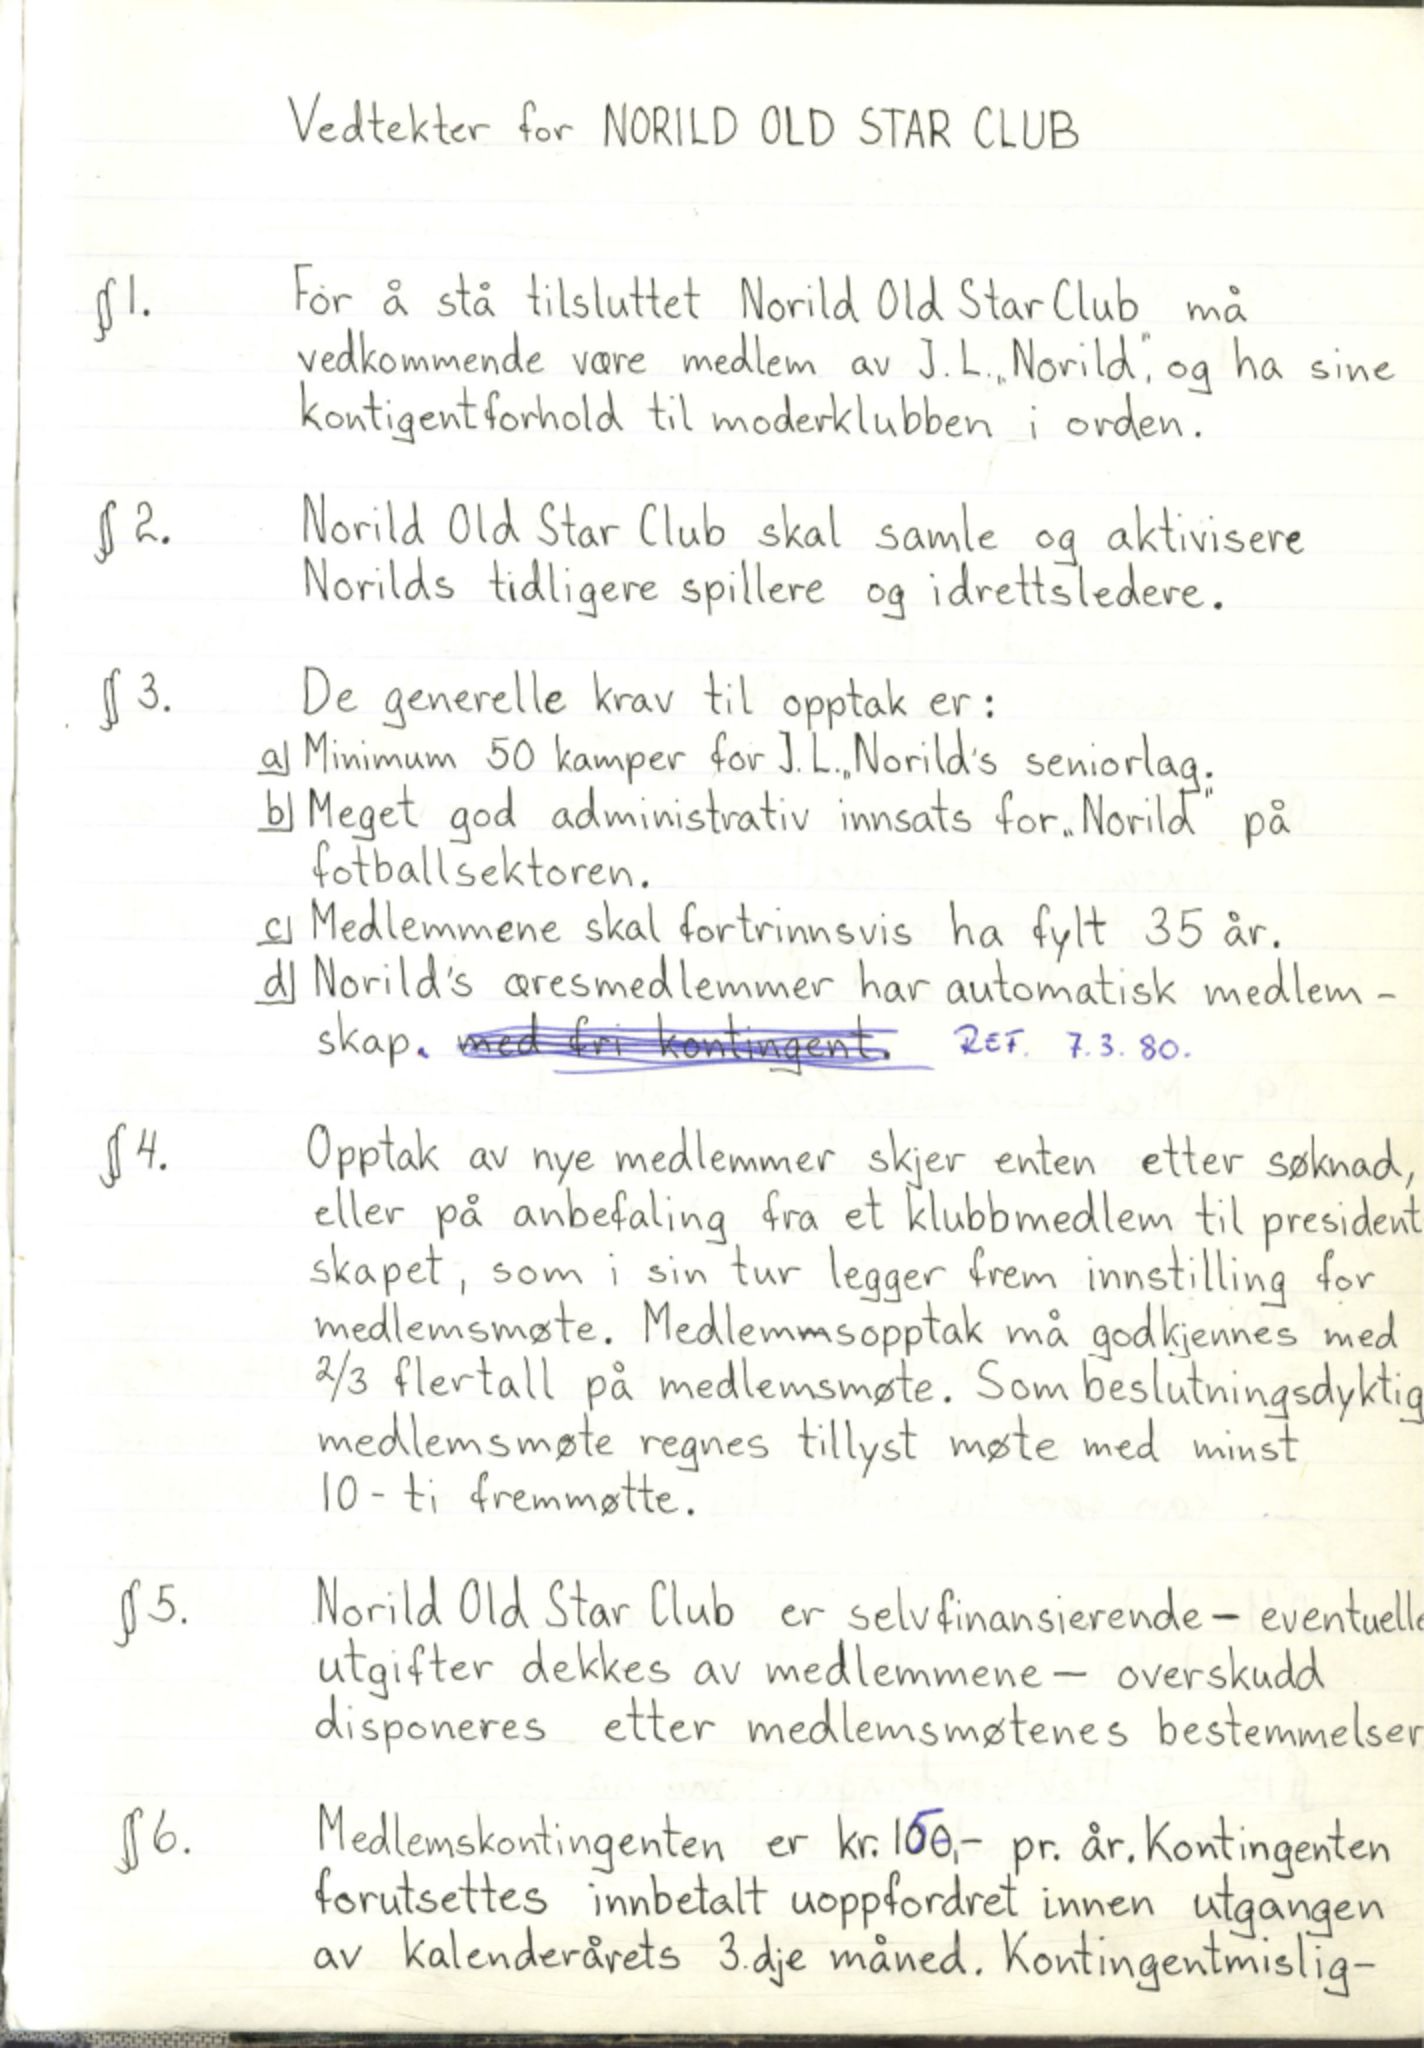 Vedtekter for NORILD OLD STAR CLUB
§ 1. For å stå tilsluttet Norild Old Star Club må
vedkommende være medlem av J.L. „Norild", og ha sine
kontigentforhold til moderklubben i orden.
§ 2. Norild Old Star Club skal samle og aktivisere
Norilds tidligere spillere og idrettsledere.
§ 3. De generelle krav til opptak er:
a) Minimum 50 kamper for J.L. „Norild's seniorlag.
b) Meget god administrativ innsats for „Norild" på
fotballsektoren.
c) Medlemmene skal fortrinnsvis ha fylt 35 år.
d) Norild's æresmedlemmer har automatisk medlem-
skap. med fri kontingent. REF. 7.3.80.
§ 4. Opptak av nye medlemmer skjer enten etter søknad,
eller på anbefaling fra et klubbmedlem til president
skapet, som i sin tur legger frem innstilling for
medlemsmøte. Medlemmsopptak må godkjennes med
2/3 flertall på medlemsmøte. Som beslutningsdyktig
medlemsmøte regnes tillyst møte med minst
10 - ti fremmøtte.
§ 5. Norild Old Star Club er selvfinansierende — eventuelle
utgifter dekkes av medlemmene — overskudd
disponeres etter medlemsmøtenes bestemmelser
§ 6. Medlemskontingenten er kr. 150,- pr. år. Kontingenten
forutsettes innbetalt uoppfordret innen utgangen
av kalenderårets 3.dje måned. Kontingentmislig-